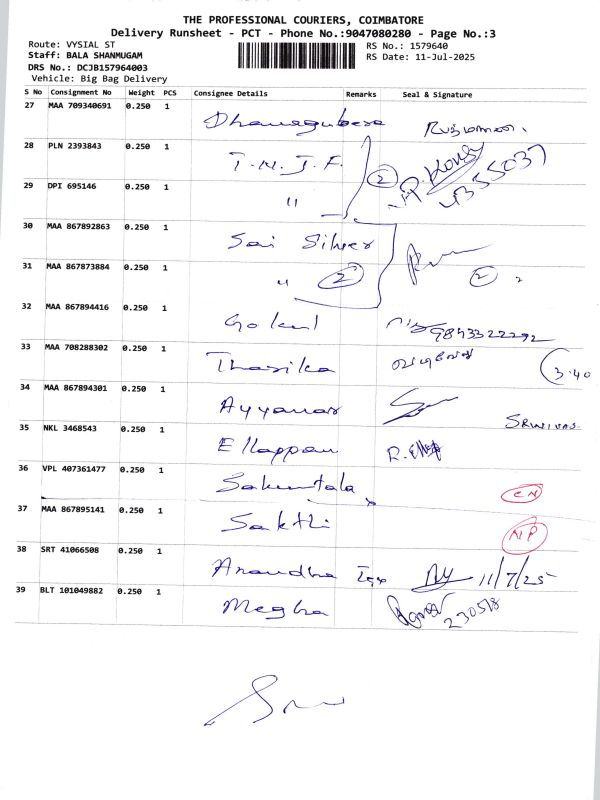 THE PROFESSIONAL COURIERS, COIMBATORE
Delivery Runsheet - PCT - Phone No.:9047080280 - Page No.:3
Route: VYSIAL ST
RS No.: 1579640
Staff: BALA SHANMUGAM
RS Date: 11-Jul-2025
DRS No.: DCJB157964003
Vehicle: Big Bag Delivery
S No Consignment No Weight PCS Consignee Details Remarks Seal & Signature
27 MAA 709340691 0.250 1 Dhanagubera
28 PLN 2393843 0.250 1 T.N.J.F. 2
29 DPI 695146 0.250 1 "
30 MAA 867892863 0.250 1 Sai Silver
31 MAA 867873884 0.250 1 " 2 2
32 MAA 867894416 0.250 1 Gokul 9843322292
33 MAA 708288302 0.250 1 Tharika 3.40
34 MAA 867894301 0.250 1 Ayyanar SRINIVAS
35 NKL 3468543 0.250 1 Ellappan
36 VPL 407361477 0.250 1 Sakuntala CN
37 MAA 867895141 0.250 1 Sakthi NP
38 SRT 41066508 0.250 1 Anandha 11/7/25
39 BLT 101049882 0.250 1 Megha 230518